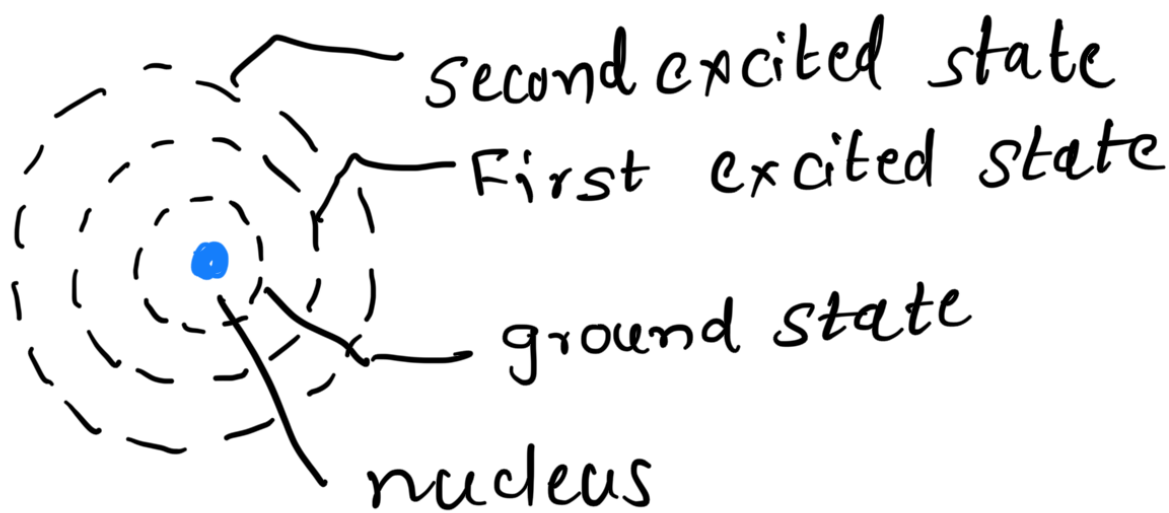 second excited state
First excited state
ground state
nucleus